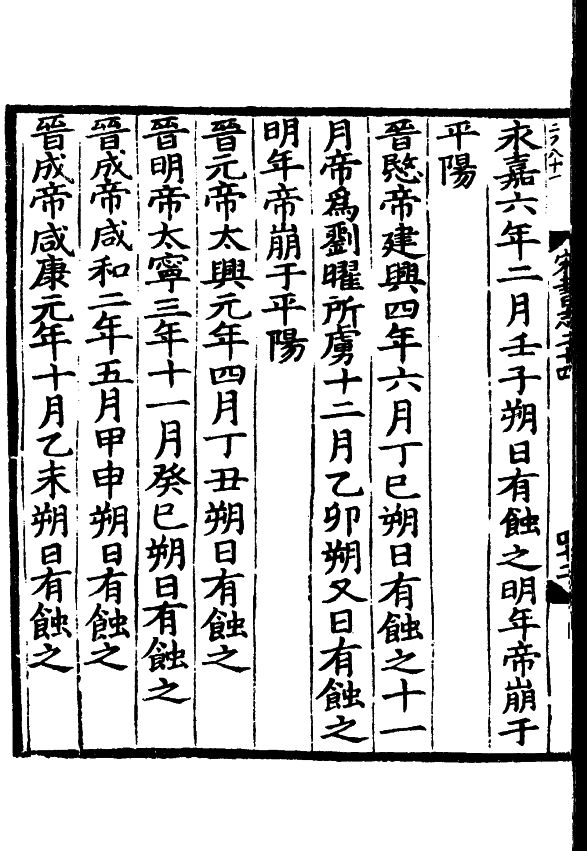 永嘉六年二月壬子朔日有蝕之明年帝崩于
平陽
晉愍帝建興四年六月丁巳朔日有蝕之十一
月帝爲劉曜所虜十二月乙卯朔又日有蝕之
明年帝崩于平陽
晉元帝太興元年四月丁丑朔日有蝕之
晉明帝太寧三年十一月癸巳朔日有蝕之
晉成帝咸和二年五月甲申朔日有蝕之
晉成帝咸康元年十月乙未朔日有蝕之